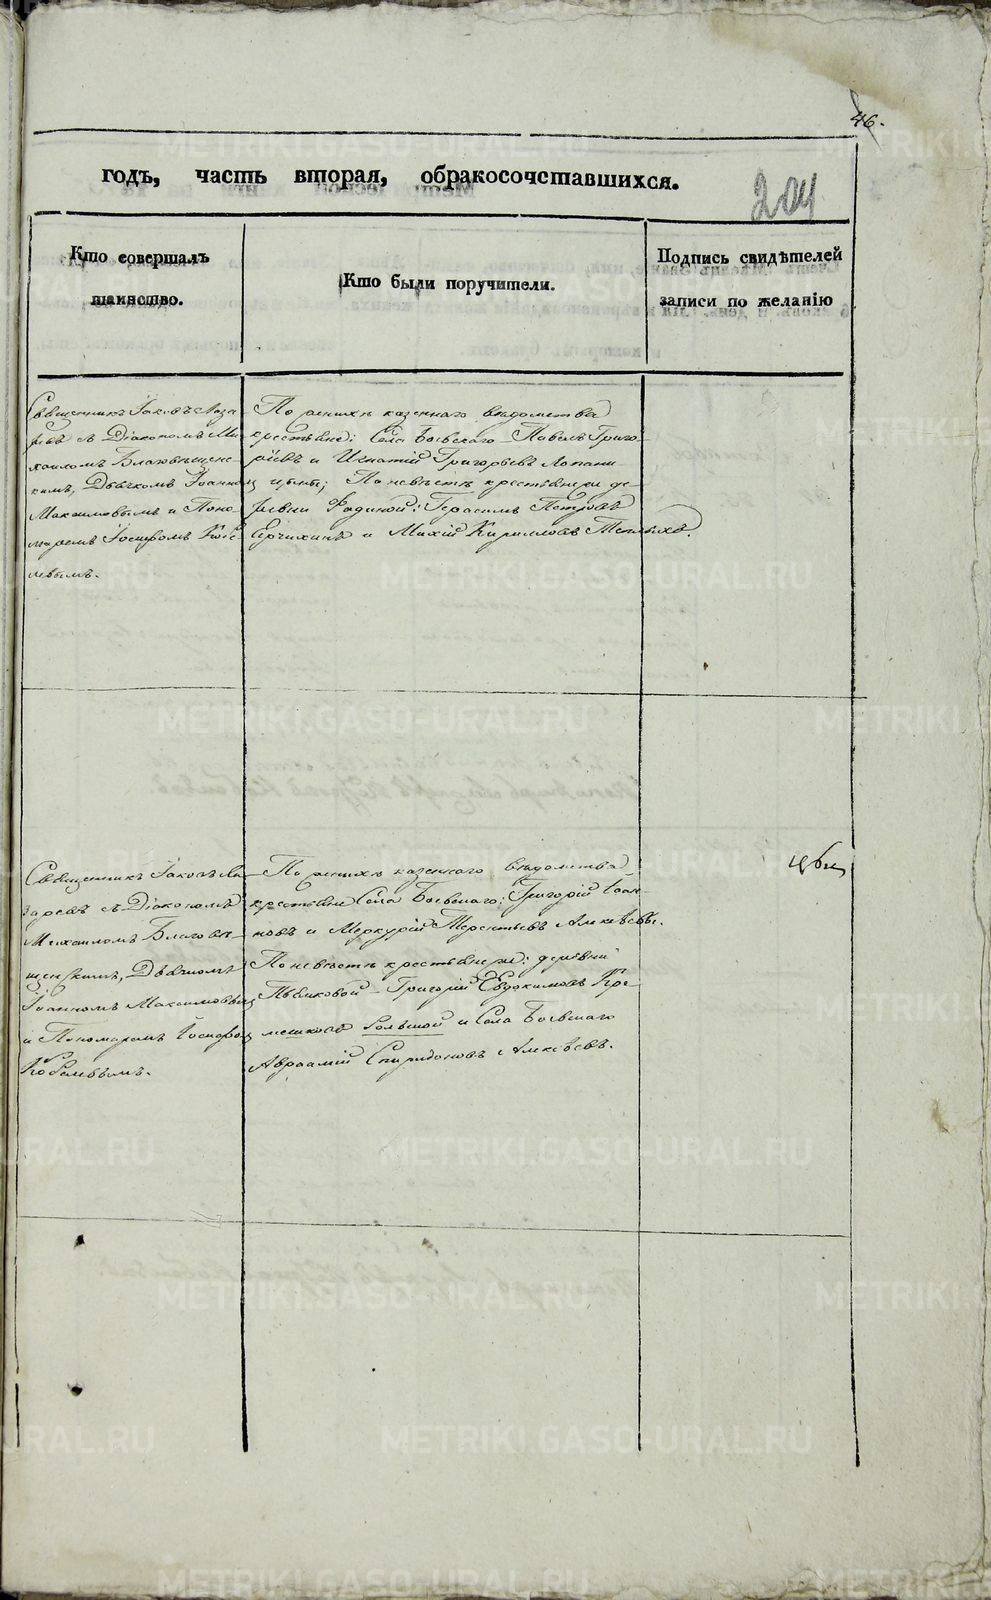 46.
204
годъ, часть вторая, обракосочетавшихся.
Кто совершалъ
таинство.
Кто были поручители.
Подпись свидѣтелей
записи по желанію
Священникъ Іаковъ Лаза-
ревъ съ Діакономъ Ми-
хаиломъ Благовѣщенс-
кимъ, Дьячкомъ Іоанномъ
Максимовымъ и Поно-
маремъ Іосифомъ Кобе-
левымъ.
По женихѣ казеннаго вѣдомства
крестьяне: Села Боевскаго Павелъ Григо-
рьевъ и Игнатій Григорьевъ
По невѣстѣ крестьяне же де-
ревни Герасимъ Петровъ
и Кирилловъ Теплыхъ.
Священникъ Іаковъ Ла-
заревъ съ Діакономъ
Михаиломъ Благовѣ-
щенскимъ, Дьячкомъ
Іоанномъ Максимовымъ
и Пономаремъ Іосифомъ
Кобелевымъ.
По женихѣ казеннаго вѣдомства
крестьяне Села Боевскаго: Григорій Іоан-
новъ и Меркурій Терентьевъ
По невѣстѣ крестьяне же: деревни
Григорій Евдокимовъ
и Села Боевскаго
Авраамій Спиридоновъ
METRIKI.GASO-URAL.RU